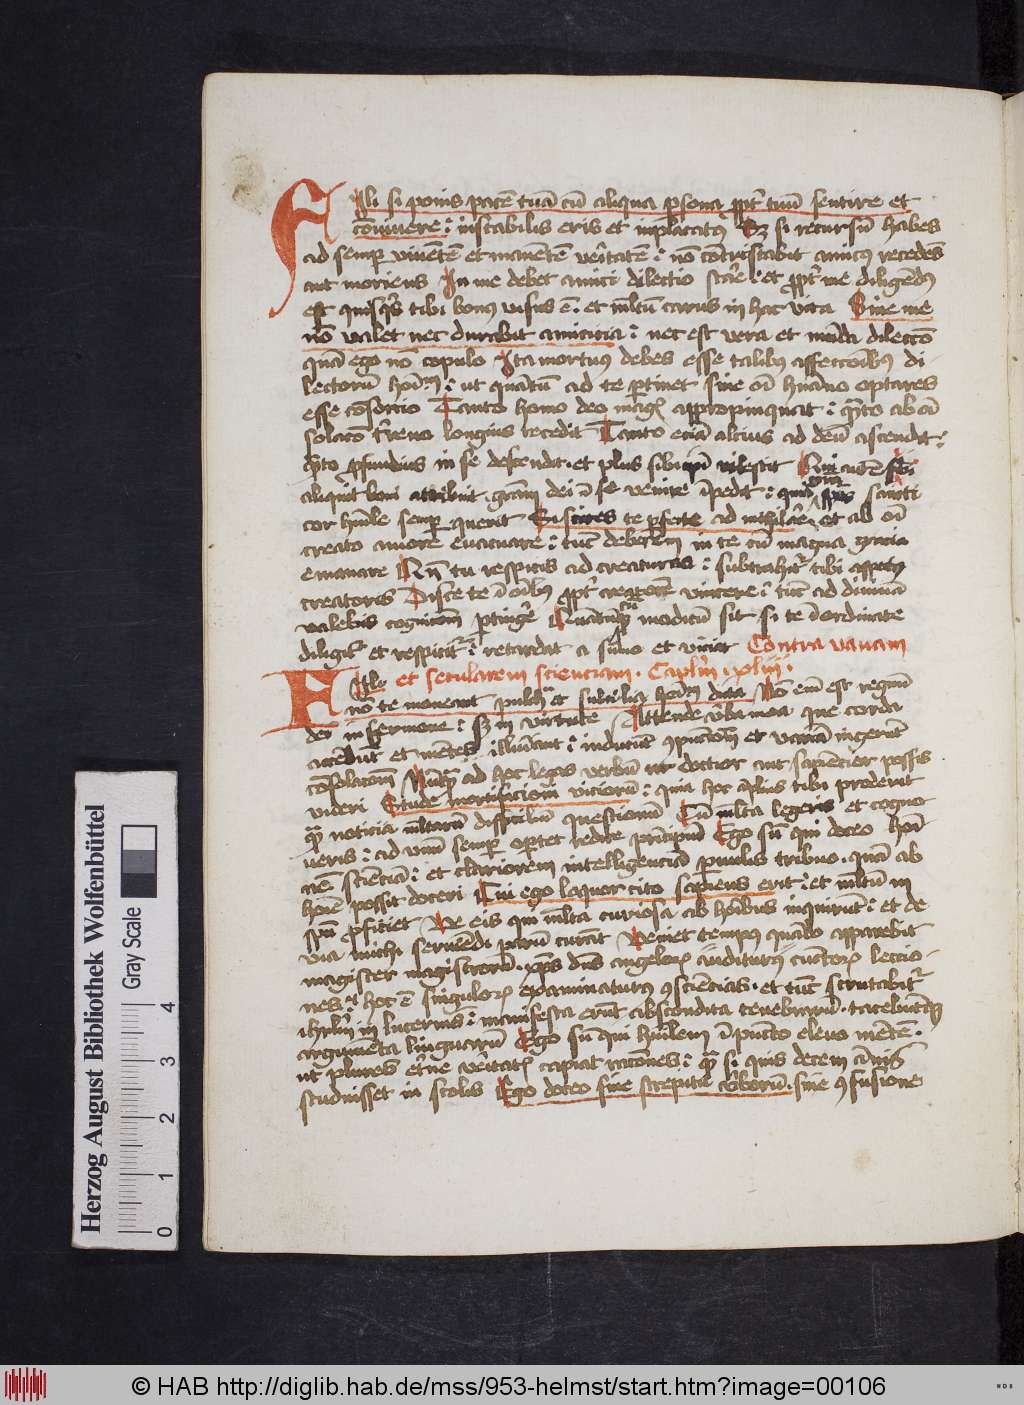 Fili si ponis pacē tuā cū aliqua p̄sona ꝓpt̄ tuū sentire et
cōvivere ⁊ instabilis eris et inplicatꝰ Sꝫ si recursū habes
ad semꝑ viventē et manentē v̄itatē ⁊ nō cōtristabit amicꝰ recedēs
aut moriens In me debet amici dilectio star̄e ⁊ et ꝓpt̄ me diligēdꝰ
est quisqꝫ tibi bonꝰ visus ē . et mltū carus in hac vita Sine me
nō valet nec durabit amicicia ⁊ nec est vera et mūda dilectio
quā ego nō copulo Ita mortuꝰ debes esse talibꝰ affectiōibꝰ di
lectorū hoīm ⁊ ut quātū ad te ꝑtinet sine oī humāno optares
esse cōsorcio Tanto homo deo magꝭ appropinquat ⁊ q̄to ab oī
solatō t̄reno longius recedit Tanto eciā alcius ad deū ascendit ⁊
q̄to ꝓfundius in se descendit . et plus sibi ip̄i vilescit Qui autē sibi
aliquit boni attribuit grām dei ī se venire īpedit ⁊ quia grā spūs sancti
cor humile semꝑ querit Si scires te ꝑfecte ad nichilar̄e et ab oī
creato amore evacuare ⁊ tūc deberem in te cū magna gracia
emanare Qn̄ tu respicis ad creaturas ⁊ subtrahit̄ tibi aspectꝰ
creatoris Disce te ī oībꝰ ꝓpt̄ creatorē vincere ⁊ tūc ad divinā
valebis cognicōem ꝑtinger̄e Quātūcūqꝫ modicū sit si te īordinate
diligit̄ et respicit̄ ⁊ retardat a sūmo et viciat Contra vanam
et secularem scienciam . Caplm̄ . xliij .
Fili nō te moveant pulchra et subtilia hoīm dicta Nō enī est regnū
dei in sermone ⁊ sꝫ in virtute Attende v̄ba mea que corda
accēdūt et mētes illumināt ⁊ inducūt ꝯpūctiōem et variā ingerūt
cōsolatiōem Nūquā ad hoc legas verbū ut doctior aut sapiēcior possis
videri Stude mortificacioni viciorū ⁊ quia hoc āplius tibi proderit
quā noticia mltarū difficiliū questionū Cū mlta legeris et cogno
veris ⁊ ad unū semꝑ oportet redire principiū Ego sū qui doceo hoī
nē sciēciā ⁊ et clariorem intelligenciā parvulis tribuo . quā ab
hoīe possit doceri Cui ego loquor cito sapiens erit ⁊ et mltū in
spū ꝓficiet Ve eis qui mlta curiosa ab hoībus inquirūt ⁊ et de
via michi serviendi parū curāt Veniet tempus quādo apparebit
magister magistrorū . xpūs dn̄s angeloꝝ auditurꝰ cunctoꝝ lectio
nes ⁊ hoc ē singuloꝝ examinaturus ꝯsciēcias . et tūc scrutabit̄
ihrlm̄ in lucernis ⁊ manifesta erūt abscondita tenebrarū . tacebuntqꝫ
argumēta linguarū Ego sū qui humilem ī pūcto elevo mētē .
ut plures et̄ne v̄itatꝭ capiat racōnes ⁊ quā si quis decem ānis
studuisset in scolis Ego doceo sine strepitu v̄borū . sine ꝯfusione
Herzog August Bibliothek Wolfenbüttel
Gray Scale
0 1 2 3 4
© HAB http://diglib.hab.de/mss/953-helmst/start.htm?image=00106